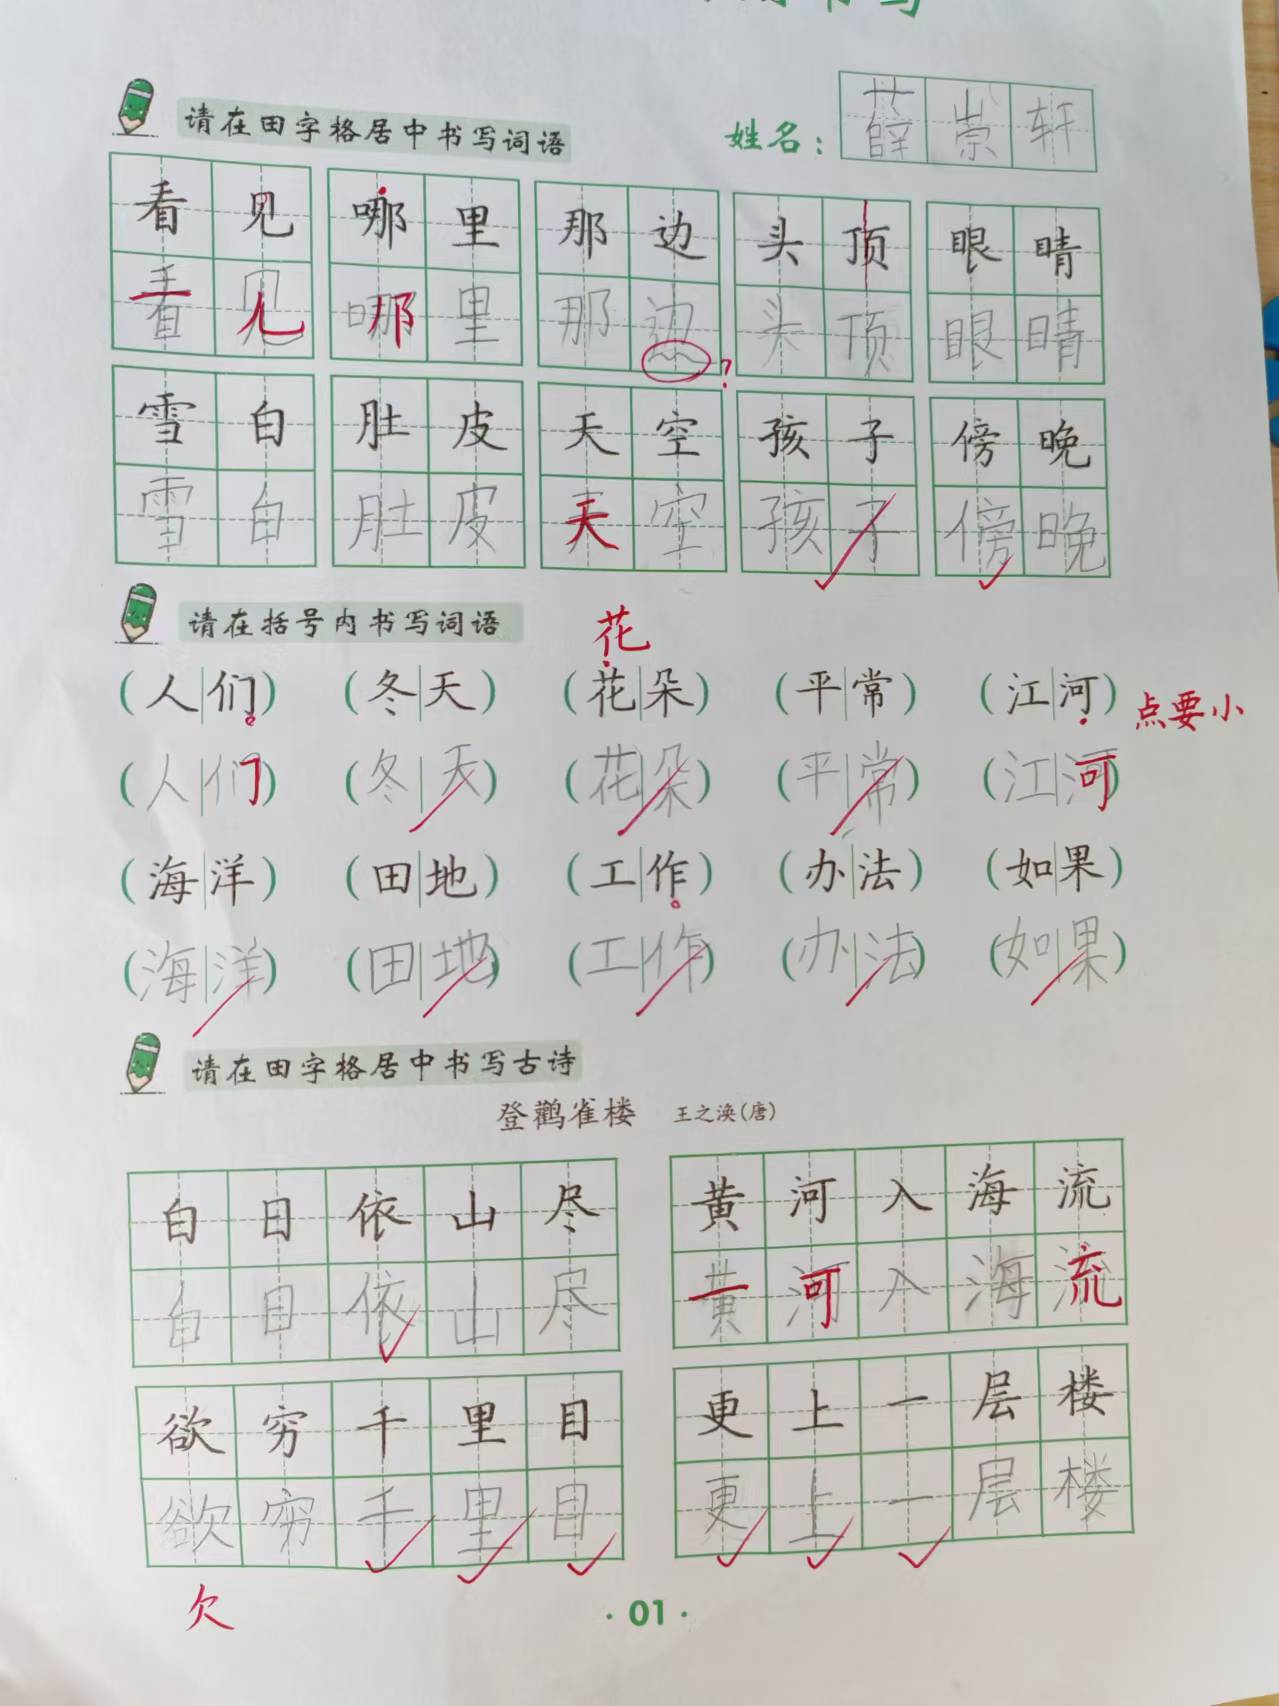 书写
请在田字格居中书写词语
姓名：薛崇轩
看见 哪里 那边 头顶 眼睛
看见 哪里 那边 头顶 眼睛
?
雪白 肚皮 天空 孩子 傍晚
雪白 肚皮 天空 孩子 傍晚
请在括号内书写词语
花
(人|们) (冬|天) (花|朵) (平|常) (江|河)
点要小
(人|们) (冬|天) (花|朵) (平|常) (江|河)
(海|洋) (田|地) (工|作) (办|法) (如|果)
(海|洋) (田|地) (工|作) (办|法) (如|果)
请在田字格居中书写古诗
登鹳雀楼 王之涣(唐)
白日依山尽 黄河入海流
白日依山尽 黄河入海流
欲穷千里目 更上一层楼
欲穷千里目 更上一层楼
欠
·01·